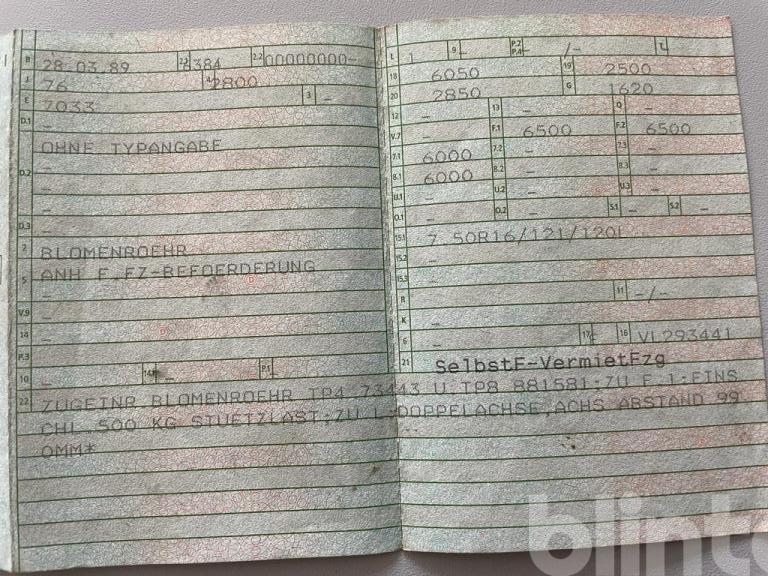 B 28.03.89 2.1 384 2.2 00000000-
J 76 4 2800
E 7033 3 -
D.1 -
OHNE TYPANGABE
D.2 -
-
-
D.3 -
2 BLOMENROEHR
5 ANH F.FZ-BEFOERDERUNG
-
V.9 -
14 -
P.3 -
10 - 14.1 - P.1
L 1 9 - P.2 P.4 /- T
18 6050 19 2500
20 2850 G 1620
12 - 13 - Q -
V.7 - F.1 6500 F.2 6500
7.1 6000 7.2 - 7.3 -
8.1 6000 8.2 - 8.3 -
U.1 - U.2 - U.3 -
O.1 - O.2 - S.1 - S.2 -
15.1 7.50R16/121/120L
15.2 -
15.3 -
R - 11 -/-
K -
6 - 17 16 VL293441
21 SelbstF-VermietFzg
22 ZUGEINR BLOMENROEHR TP4 73443 U.TP8 881581;ZU F.1:EINS
CHL 500 KG STUETZLAST;ZU L:DOPPELACHSE,ACHSABSTAND 99
0MM*
blinto